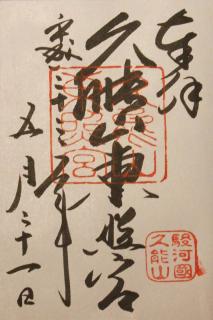 奉拝
久能山東照宮
五月二十一日
駿河國
久能山